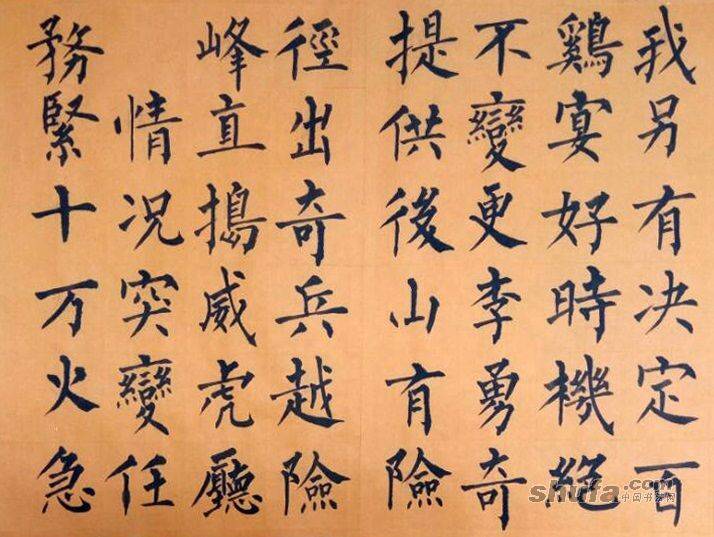 我另有决定百
鷄宴好時機絕
不變更李勇奇
提供後山有險
徑出奇兵越險
峰直搗威虎廳
情况突變任
務緊十万火急
shufa.com
中国书法网